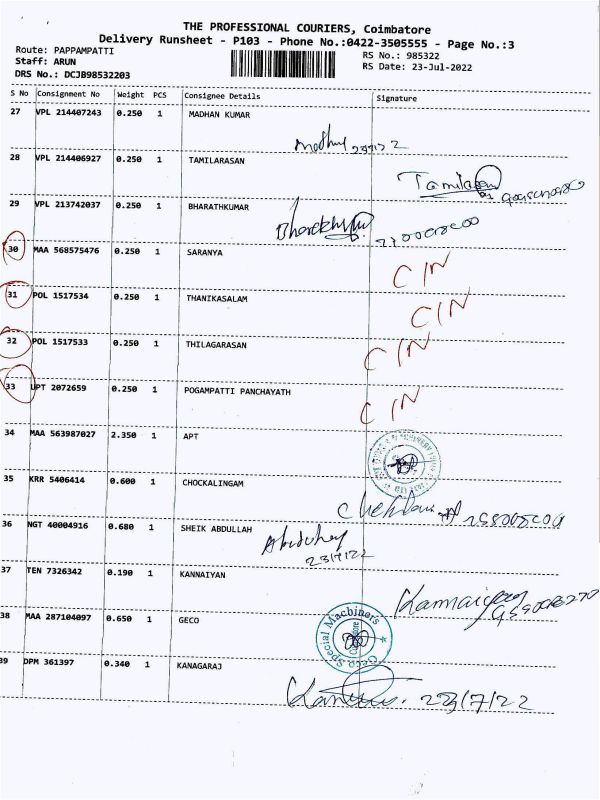 THE PROFESSIONAL COURIERS, Coimbatore
Delivery Runsheet - P103 - Phone No.:0422-3505555 - Page No.:3
Route: PAPPAMPATTI RS No.: 985322
Staff: ARUN RS Date: 23-Jul-2022
DRS No.: DCJB98532203
S No Consignment No Weight PCS Consignee Details Signature
27 VPL 214407243 0.250 1 MADHAN KUMAR
28 VPL 214406927 0.250 1 TAMILARASAN
29 VPL 213742037 0.250 1 BHARATHKUMAR
30 MAA 568575476 0.250 1 SARANYA C/N
31 POL 1517534 0.250 1 THANIKASALAM C/N
32 POL 1517533 0.250 1 THILAGARASAN C/N
33 UPT 2072659 0.250 1 POGAMPATTI PANCHAYATH C/N
34 MAA 563987027 2.350 1 APT
35 KRR 5406414 0.600 1 CHOCKALINGAM
36 NGT 40004916 0.680 1 SHEIK ABDULLAH
23/7/22
37 TEN 7326342 0.190 1 KANNAIYAN
38 MAA 287104097 0.650 1 GECO Geco Special Machiners
39 DPM 361397 0.340 1 KANAGARAJ
23/7/22